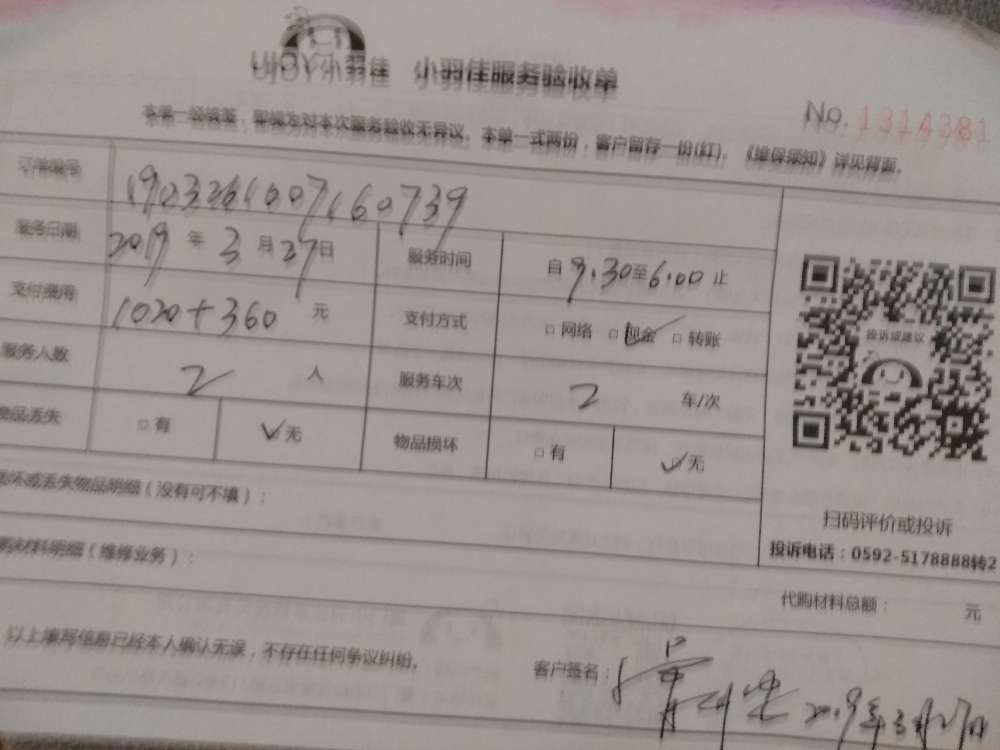 UJOY小羽佳 小羽佳服务验收单
No.1314381
本单一经核签，即视为对本次服务验收无异议。本单一式两份，客户留存一份(红)。《维保须知》详见背面。
订单编号
服务日期 2019年3月27日 服务时间 自9.30至6.00止
支付费用 1020+360 元 支付方式 □网络 □现金 □转账
服务人数 2 人 服务车次 2 车/次
物品丢失 □有 □无 物品损坏 □有 □无
损坏或丢失物品明细（没有可不填）：
材料明细（维修业务）：
代购材料总额： 元
以上填写信息已经本人确认无误，不存在任何争议纠纷。
客户签名： 2019年3月27日
投诉或建议
扫码评价或投诉
投诉电话：0592-5178888转2